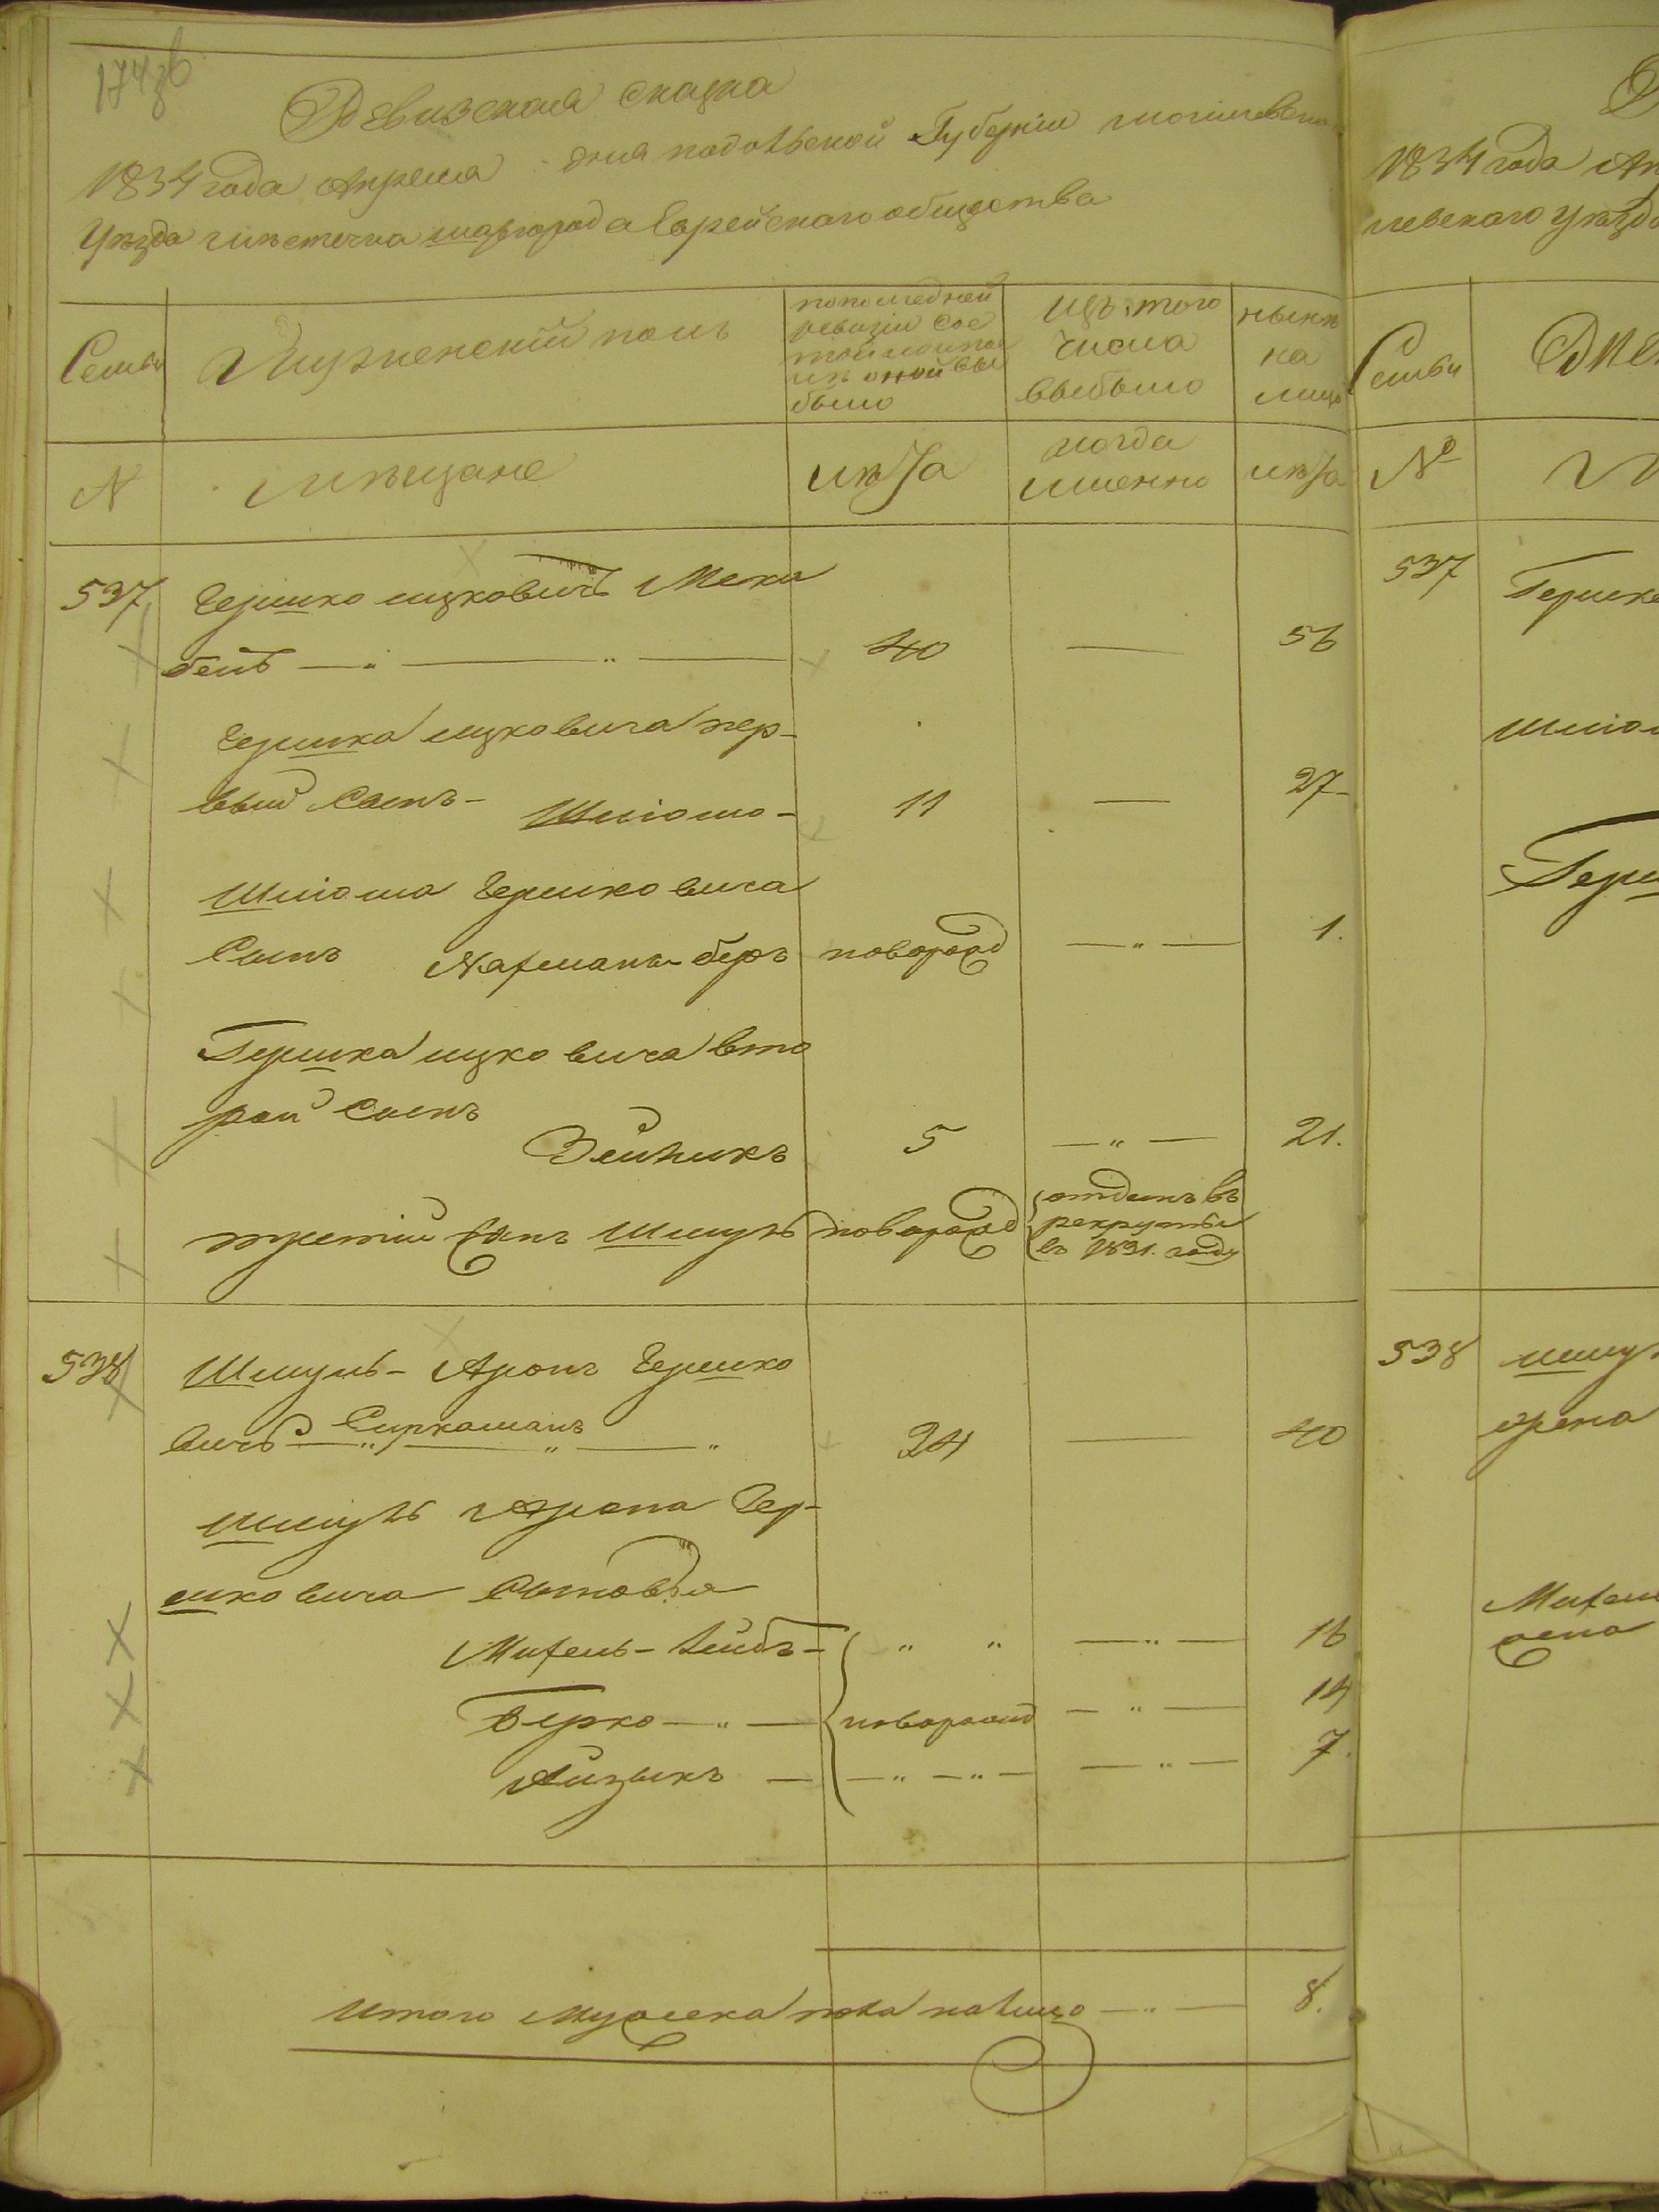 174 об
Ревизская сказка
1834 года Апреля дня подольской Губернии могилевска
Уѣзда мѣстечка шаргорода Еврейского общества
Семьи
Мужескій полъ
попоследней
ревизіи сос
тояло и по
лѣ оной вы
было
Изъ того
числа
выбыло
нынѣ
на
лицо
N
мѣщане
лѣта
когда
именно
лѣта
537 Гершко ицковичъ Меки
беръ 40 — 56
Гершка ицковича пер-
вый Сынъ - Шліома - 11 — 27
Шліома Гершковича
Сынъ Nахманъ-беръ новорожд — " — 1.
Гершка ицковича вто
рой Сынъ
Зейликъ 5 — " — 21.
третій Сынъ Шмуль новорожд отданъ въ
рекруты
въ 1831. году
538 Шмуль - Аронъ Гершко
вичъ Сиркоманъ 24 — 40
шмуль Арона Гер-
шковича Сыновья
Михель - Лейбъ - " " — " — 16
Берко — " — новорожд — " — 14
Айзыкъ — — " — " — — " — 7.
Итого мужеска пола налицо — " — 8.
1834 года Ап
левскаго Уѣзда
Семьи
N
537 Гершк
шліом
Герш
538 шмул
арона
Михел